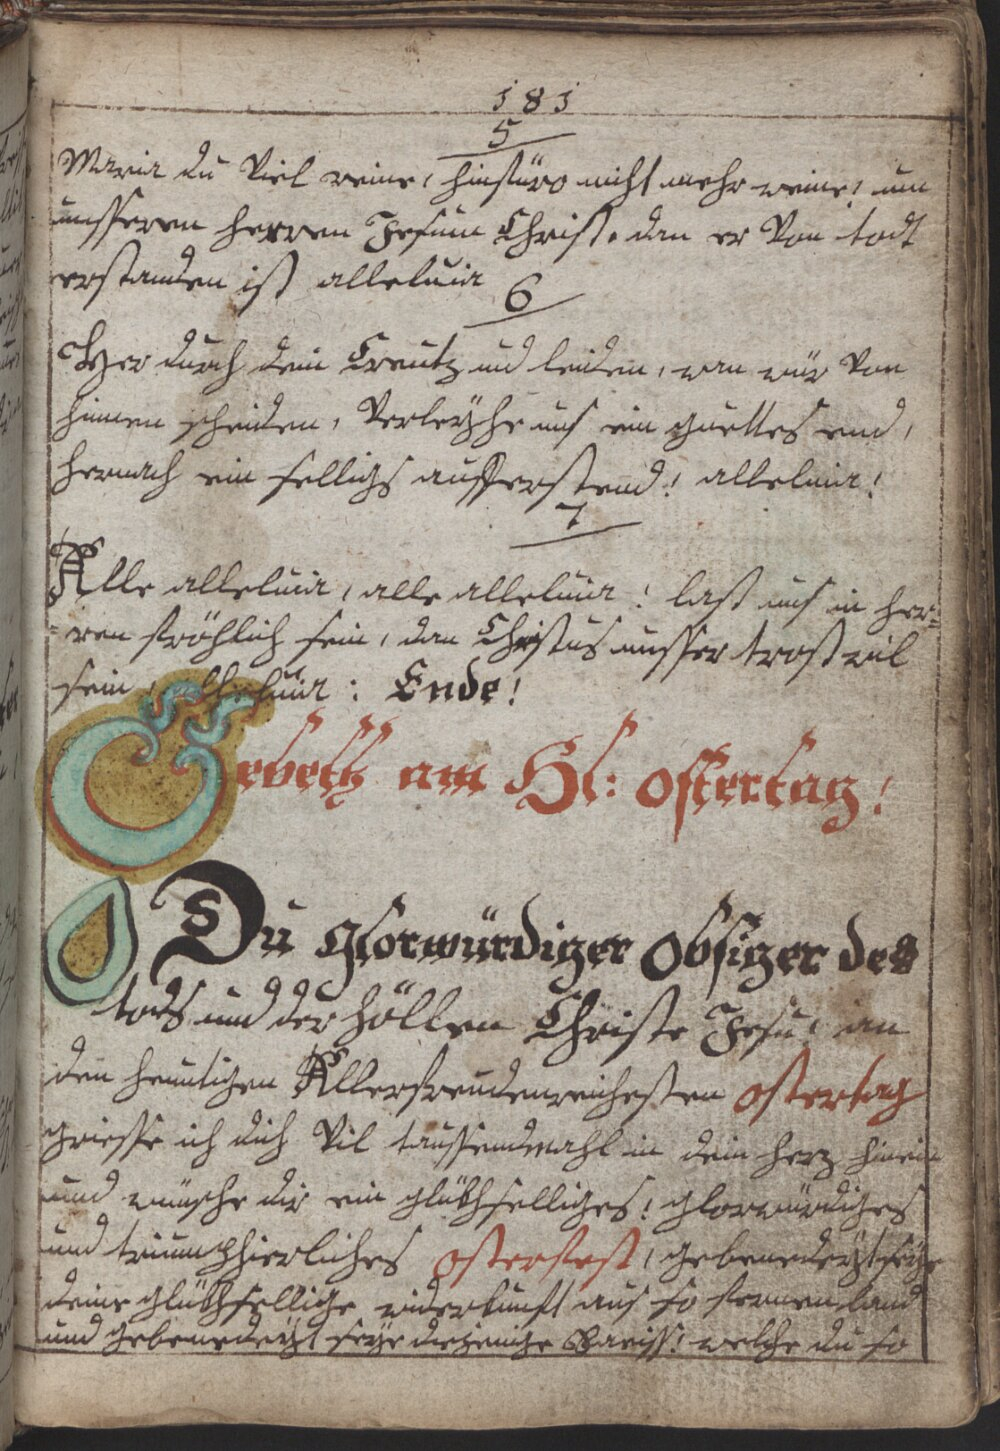 181
5
Maria du Viel reine, hinfüro nicht mehr weine! um
unsseren herren Jesum Christ. dan er Von todt
erstanden ist alleluia
6
Her durch dein Creutz und leiden, wan wür Von
hinnen scheiden, Verleyhe uns ein guettes end,
hernach ein selligs aufferstend! alleluia!
7
Alle alleluia, alle alleluia! last uns in her-
-ren fröhlich sein, dan Christus unsser trost wil
sein, alleluia: Ende!
Gebett am Hl: ostertag!
O Du glorwürdiger Obsiger des
tods und der höllen Christe Jesu! an
den heuntigen Allerfreudenreichesten ostertag
griesse ich dich Vil taussendmahl in dein herz hinein
und wünsche dir ein glükhselliges! glorwürdiges
und triumphierliches osterfest, gebenedeyt seye
deine glükhsellige widerkunft aus so fernen land
und gebenedeyt seye diejenige Pariss! welche du so